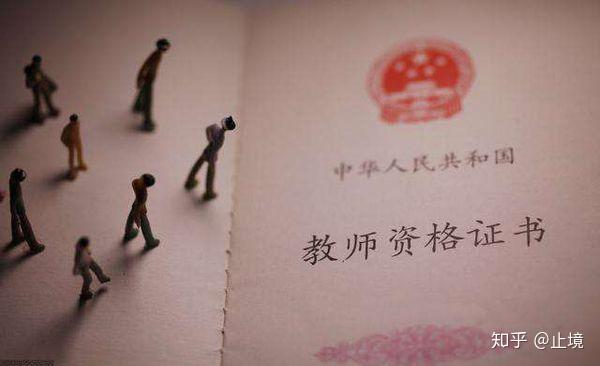 中华人民共和国
教师资格证书
知乎 @止境